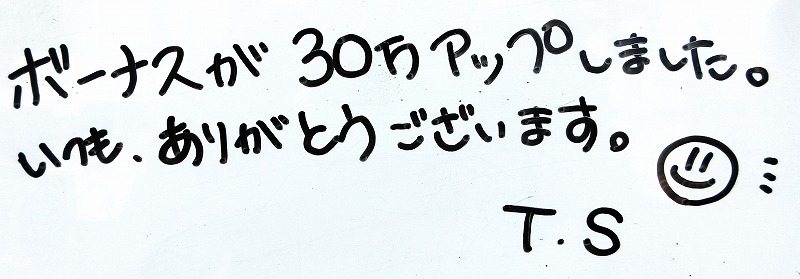 ボーナスが30万アップしました。
いつも、ありがとうございます。
T.S